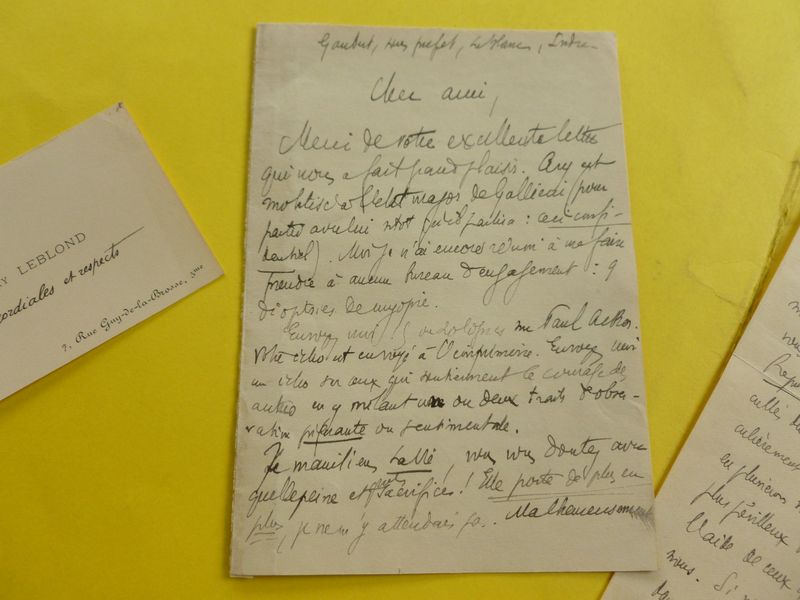 sous préfet, Le Blanc, Indre
Cher ami,
Merci de votre excellente lettre
qui nous a fait grand plaisir. Ary est
mobilisé à l'état major de Gallieni (pour
partir avec lui sitôt qu'il partira : ceci confi-
dentiel). Moi je n'ai encore réussi à me faire
prendre à aucun bureau d'engagement : 9
dioptries de myopie.
Envoyez moi sur Paul Acker.
Votre écho est envoyé à l'imprimerie. Envoyez moi
un écho sur ceux qui soutiennent le courage des
autres en y mêlant un ou deux traits d'obser-
vation piquante ou sentimentale.
Je maintiens La Vie, vous vous doutez avec
quelle peine et quels sacrifices ! Elle porte de plus en
plus, je ne m'y attendais pas. Malheureusement
RY LEBLOND
cordiales et respects
7, Rue Guy-de-la-Brosse, 5me
culièrement
en plusieurs
plus périlleux
l'aide de ceux
nous. Si